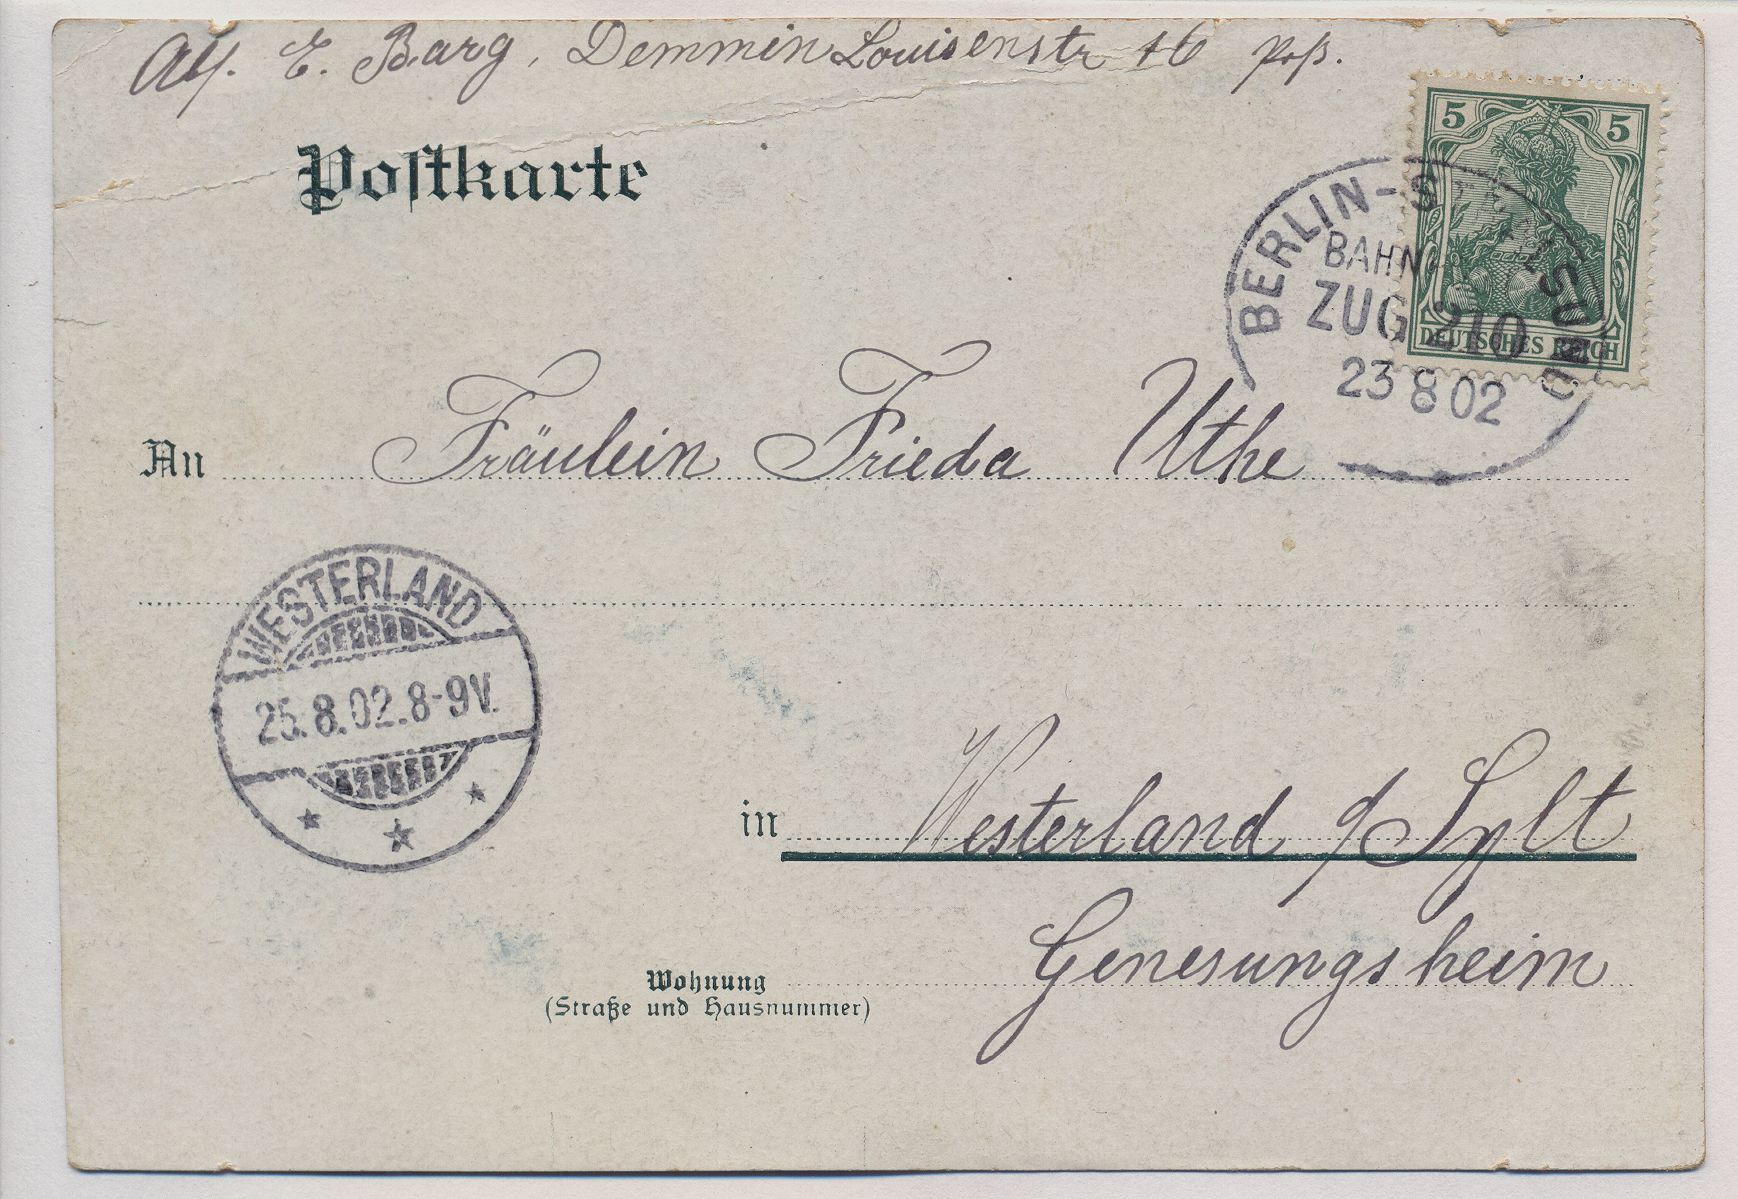 Abs. E. Barg, Demmin Louisenstr 16
Postkarte
5 5
DEUTSCHES REICH
BERLIN-STRALSUND
BAHNPOST
ZUG 210
23 8 02
An Fräulein Frieda Uthe
WESTERLAND
25.8.02.8-9V.
in Westerland a/ Sylt
Wohnung
(Straße und Hausnummer)
Genesungsheim